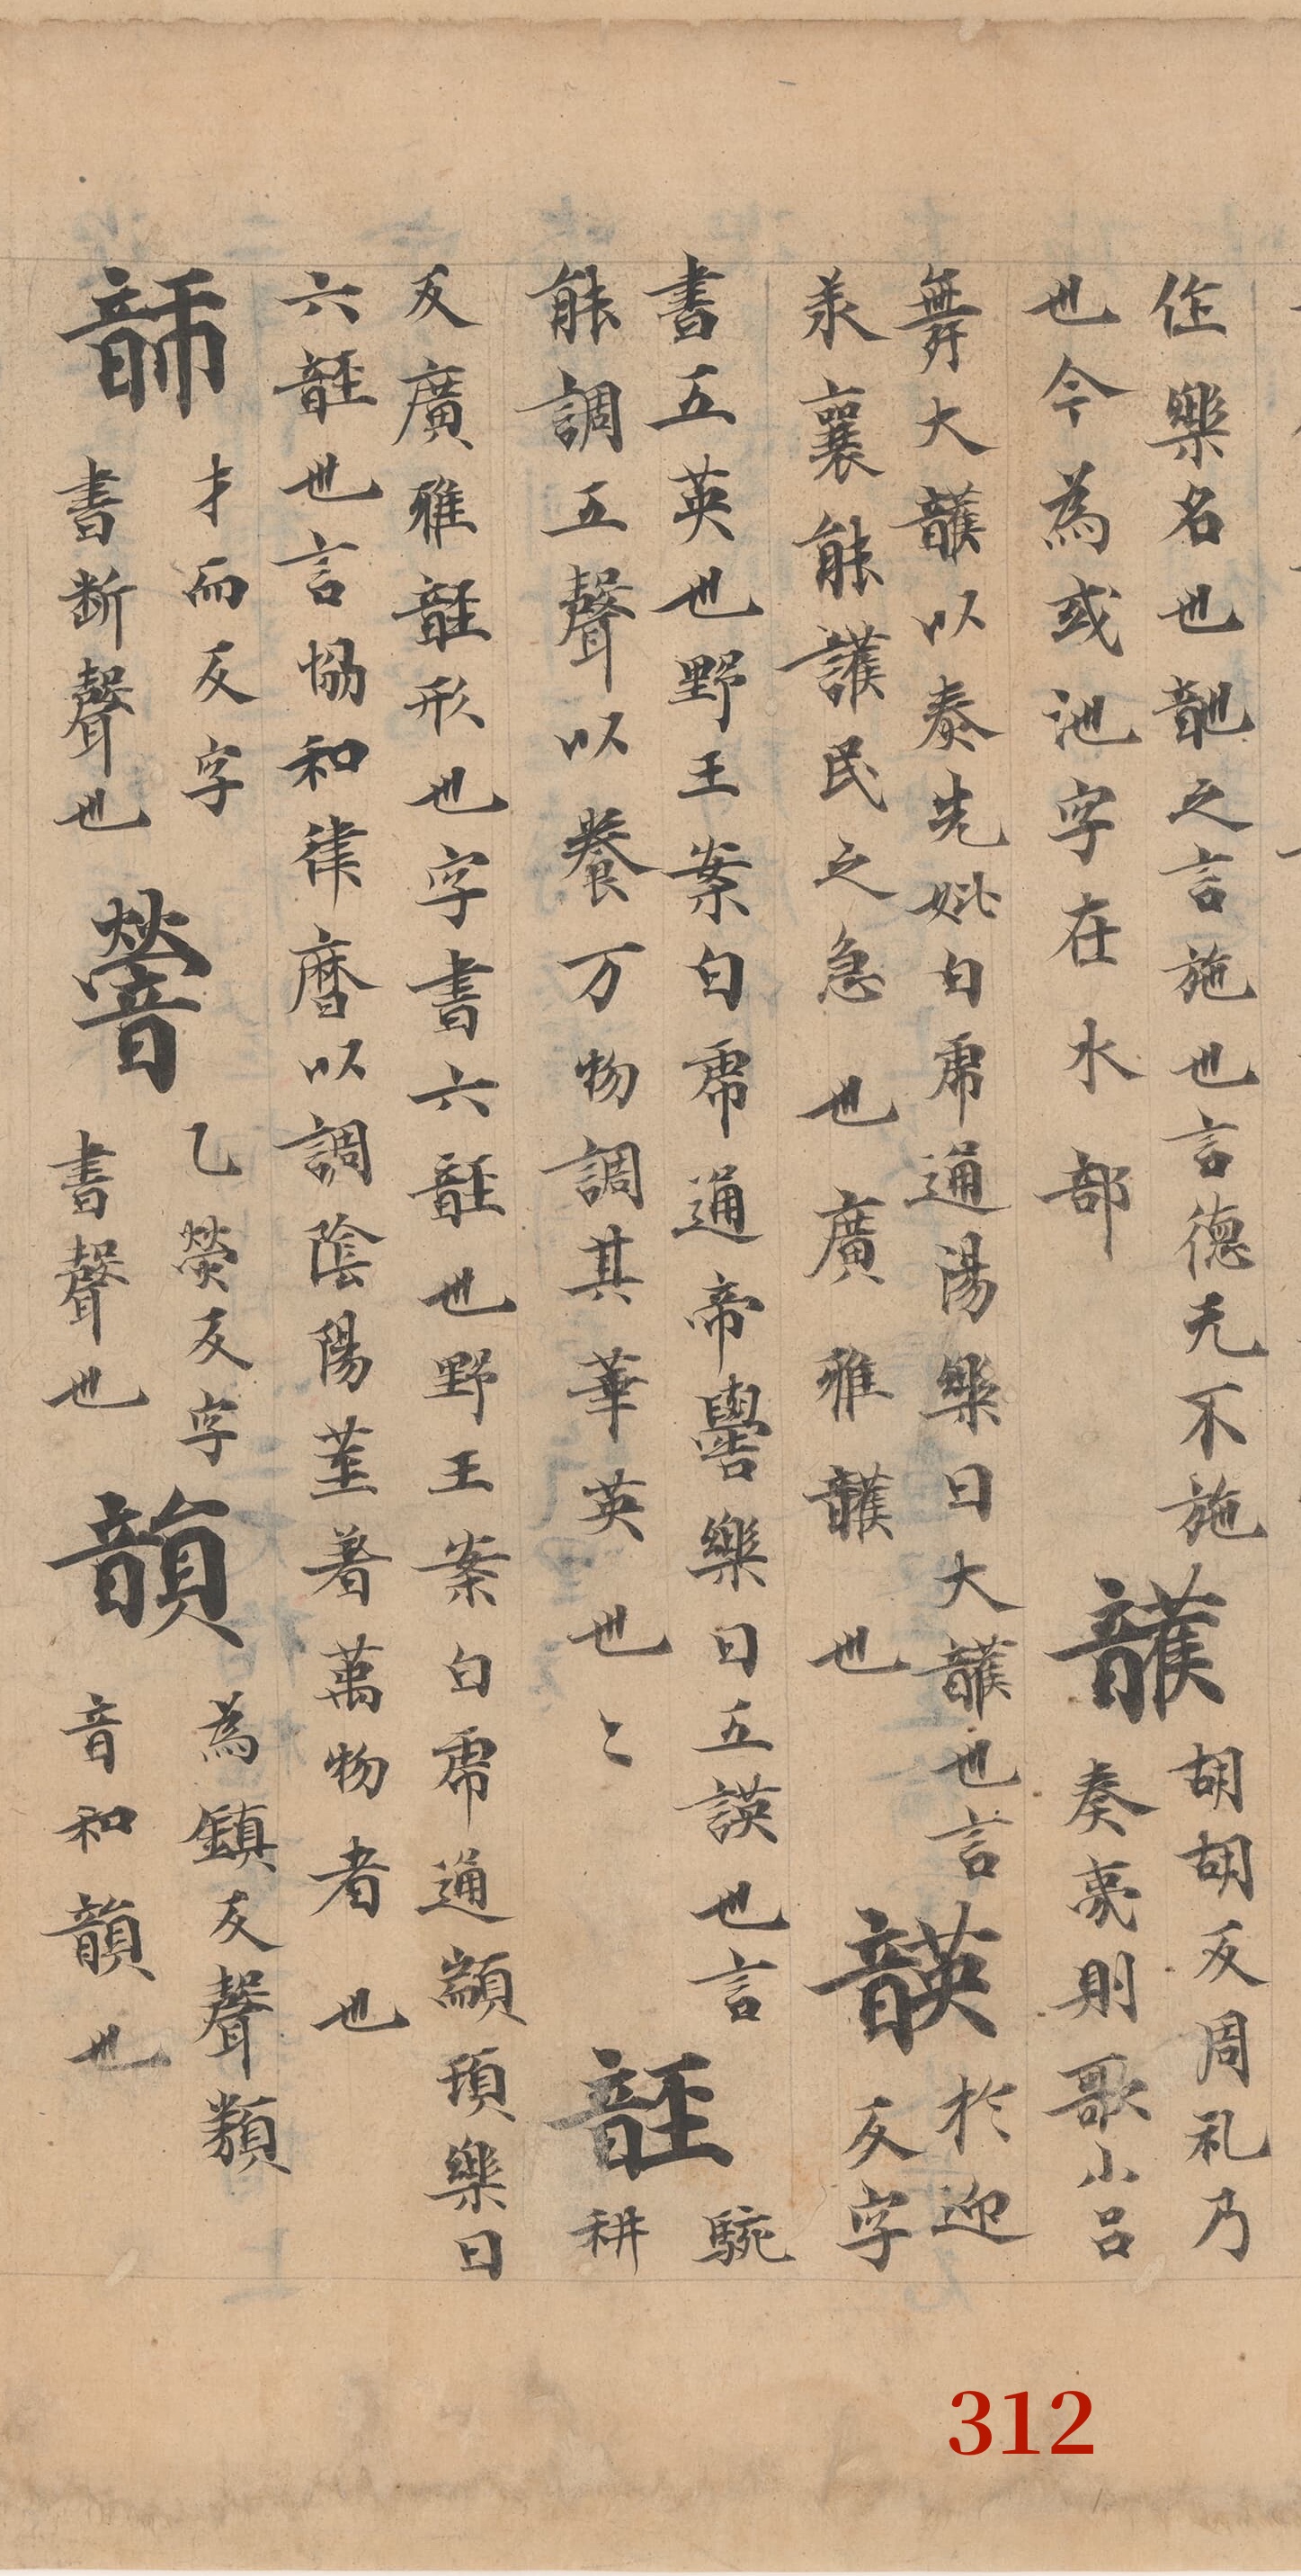 作樂名也䪧之言施也言德无不施
也今為或池字在水部
頀
胡胡反周礼乃
奏夷則歌小呂
舞大頀以泰先妣白虎通湯樂曰大頀也言
承襄能護民之急也廣雅頀也
韺
於迎
反字
書五英也野王案白虎通帝嚳樂曰五韺也言
能調五聲以養万物調其華英也〻
䪫
䮍
耕
反廣雅䪫形也字書六䪫也野王案白虎通顓頊樂曰
六䪫也言協和律曆以調陰陽莖著萬物者也
䪞
才而反字
書断聲也
乙熒反字
書聲也
韻
為鎮反聲類
音和韻也
312